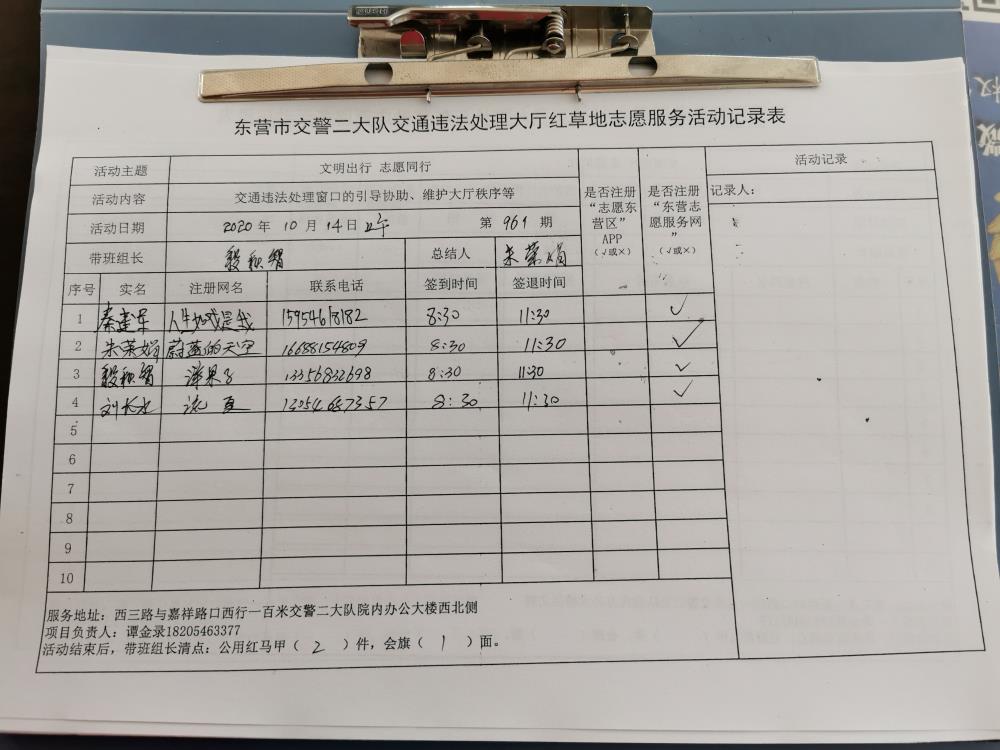 东营市交警二大队交通违法处理大厅红草地志愿服务活动记录表
活动主题 文明出行 志愿同行
活动内容 交通违法处理窗口的引导协助、维护大厅秩序等
活动日期 2020 年 10 月 14 日 第 961 期
带班组长 总结人 朱荣娟
是否注册“志愿东营区”APP（√或×）
是否注册“东营志愿服务网”（√或×）
活动记录
记录人：
序号 实名 注册网名 联系电话 签到时间 签退时间
1 秦建军 人生如戏是我 15954618182 8:30 11:30 √
2 朱荣娟 蔚蓝的天空 16688154809 8:30 11:30 √
3 洋果子 13356832698 8:30 11:30 √
4 刘长水 流夏 13054687357 8:30 11:30 √
5
6
7
8
9
10
服务地址：西三路与嘉祥路口西行一百米交警二大队院内办公大楼西北侧
项目负责人：谭金录18205463377
活动结束后，带班组长清点：公用红马甲（ 2 ）件，会旗（ 1 ）面。